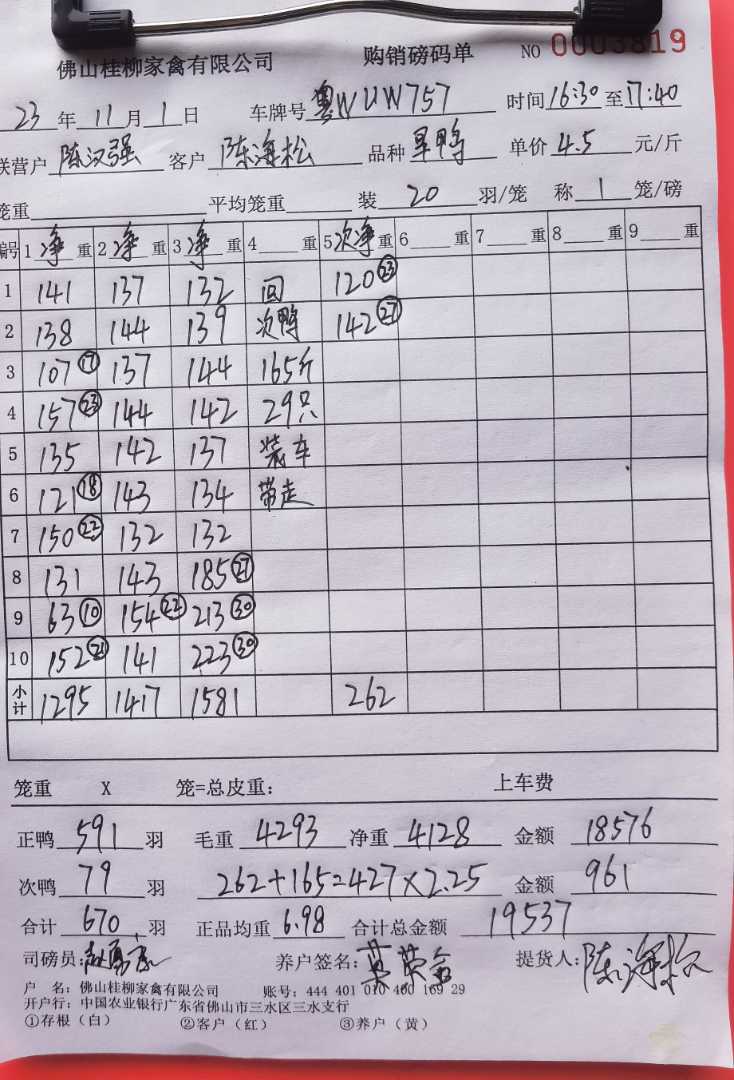 佛山桂柳家禽有限公司 购销磅码单 NO 0003819
23 年 11 月 1 日 车牌号 粤WUW757 时间 16:30 至 17:40
联营户 陈汉强 客户 陈海松 品种 旱鸭 单价 4.5 元/斤
笼重 平均笼重 装 20 羽/笼 称 1 笼/磅
编号 1 净 重 2 净 重 3 净 重 4 重 5 次净 重 6 重 7 重 8 重 9 重
1 141 137 132 回 120 ㉓
2 138 144 139 次鸭 142 ㉗
3 107 ⑰ 137 144 165斤
4 157 ㉓ 144 142 29只
5 135 142 137 装车
6 121 ⑱ 143 134 带走
7 150 ㉒ 132 132
8 131 143 185 ㉗
9 63 ⑩ 154 ㉒ 213 ㉚
10 152 ㉑ 141 223 ㉚
小计 1295 1417 1581 262
笼重 X 笼=总皮重: 上车费
正鸭 591 羽 毛重 4293 净重 4128 金额 18576
次鸭 79 羽 262+165=427×2.25 金额 961
合计 670 羽 正品均重 6.98 合计总金额 19537
司磅员: 养户签名: 提货人: 陈海松
户 名: 佛山桂柳家禽有限公司 账号: 444 401 010 400 169 29
开户行: 中国农业银行广东省佛山市三水区三水支行
①存根（白） ②客户（红） ③养户（黄）